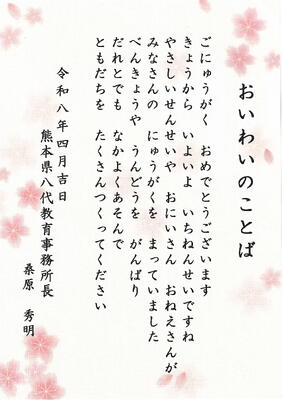 おいわいのことば
ごにゅうがく　おめでとうございます
きょうから　いよいよ　いちねんせいですね
やさしいせんせいや　おにいさん　おねえさんが
みなさんの　にゅうがくを　まっていました
べんきょうや　うんどうを　がんばり
だれとでも　なかよくあそんで
ともだちを　たくさんつくってください
令和八年四月吉日
熊本県八代教育事務所長
桑原　秀明